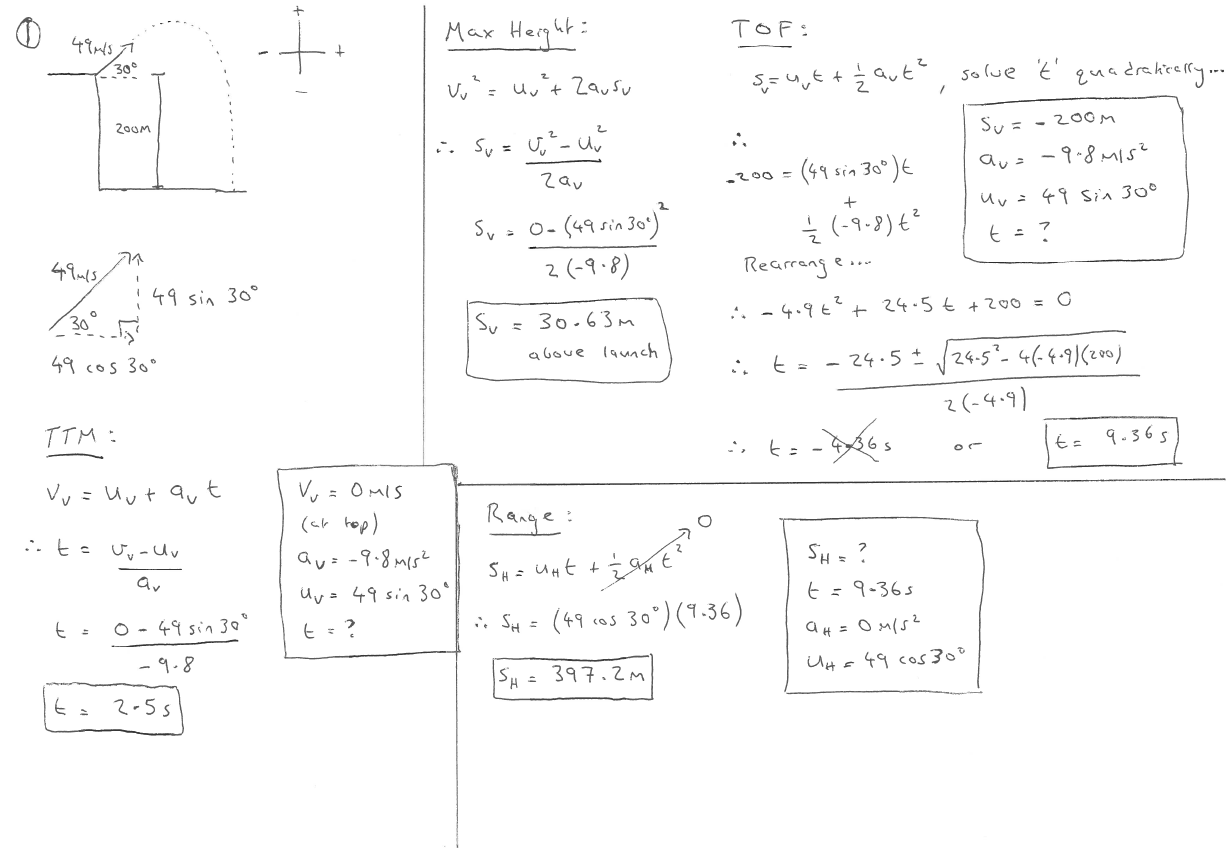 ①
49m/s
30°
+
- +
-
200m
49m/s
49 sin 30°
30°
49 cos 30°
TTM:
Vᵥ = uᵥ + aᵥ t
∴ t = (vᵥ - uᵥ) / aᵥ
t = (0 - 49 sin 30°) / -9.8
t = 2.5s
Vᵥ = 0 m/s
(at top)
aᵥ = -9.8 m/s²
uᵥ = 49 sin 30°
t = ?
Max Height:
Vᵥ² = uᵥ² + 2aᵥsᵥ
∴ Sᵥ = (vᵥ² - uᵥ²) / 2aᵥ
Sᵥ = (0 - (49 sin 30°)²) / 2(-9.8)
Sᵥ = 30.63m
above launch
TOF:
sᵥ = uᵥt + ½ aᵥt², solve 't' quadratically...
∴
-200 = (49 sin 30°)t
+
½ (-9.8)t²
Rearrange...
∴ -4.9t² + 24.5t + 200 = 0
∴ t = (-24.5 ± √(24.5² - 4(-4.9)(200))) / 2(-4.9)
∴ t = -4.36s or t = 9.36s
Sᵥ = -200m
aᵥ = -9.8 m/s²
uᵥ = 49 sin 30°
t = ?
Range:
S_H = u_H t + ½ a_H t² 0
∴ S_H = (49 cos 30°)(9.36)
S_H = 397.2m
S_H = ?
t = 9.36s
a_H = 0 m/s²
u_H = 49 cos 30°